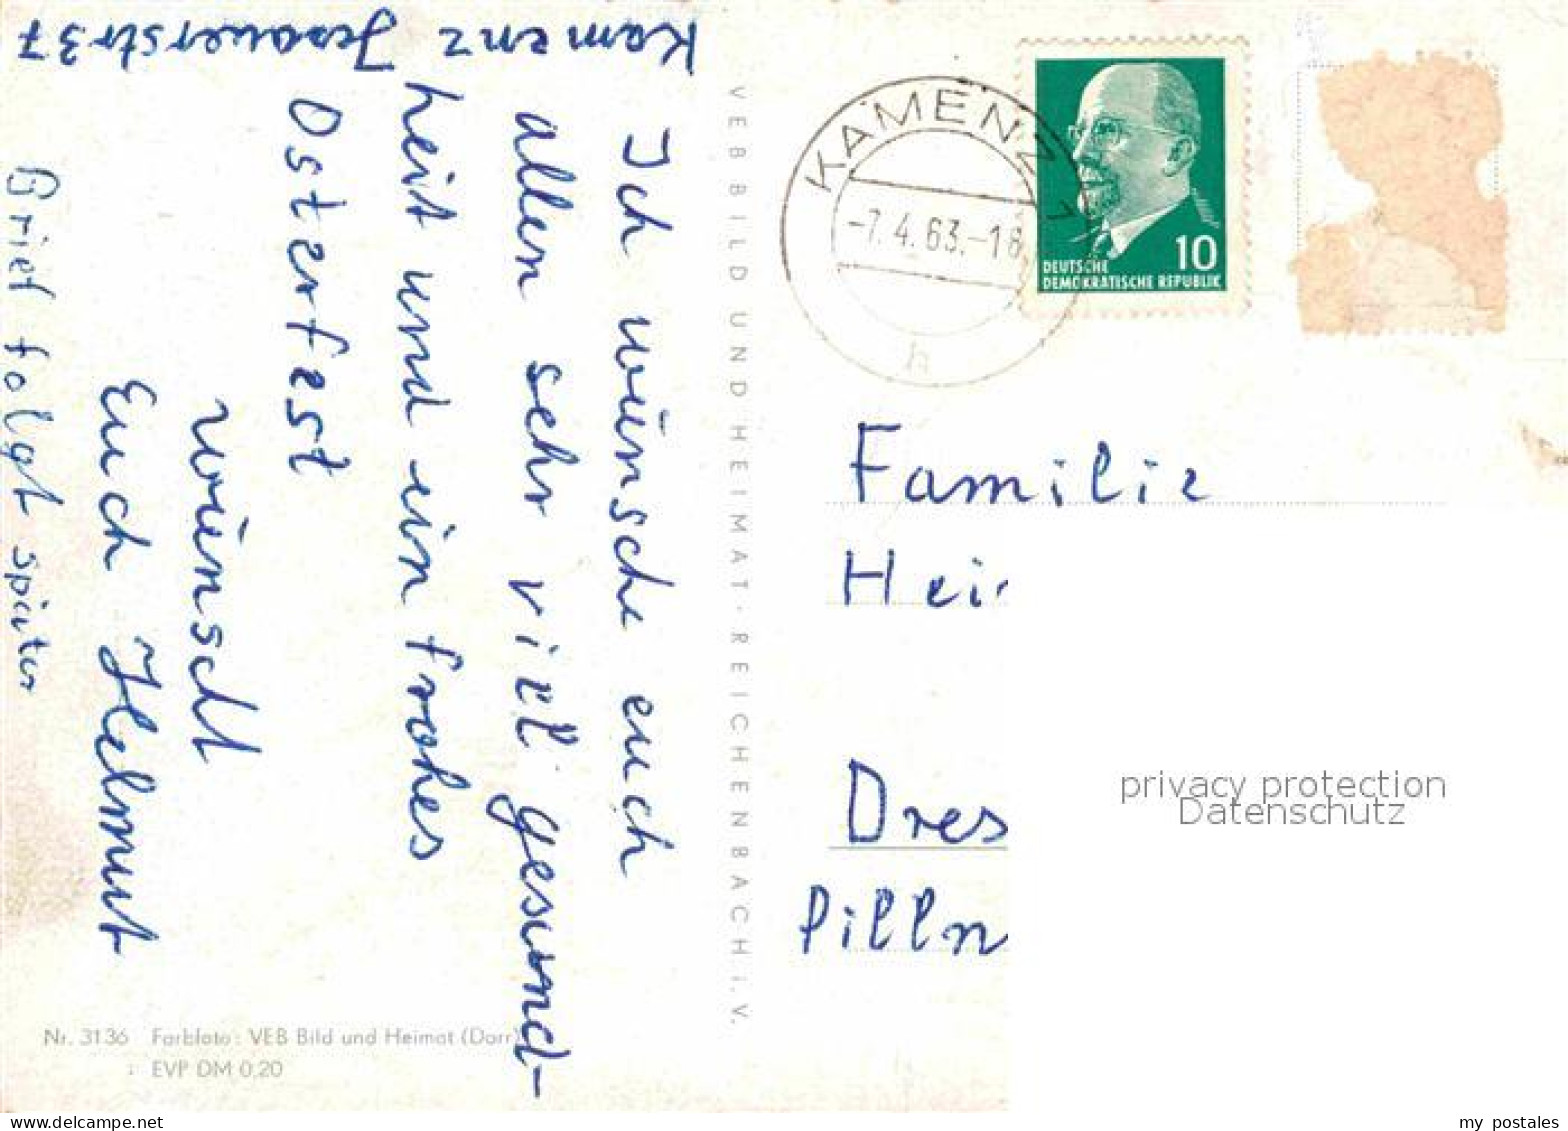 Kamenz Jesauerstr 37
Ich wünsche euch
allen sehr viel gesund-
heit und ein frohes
Osterfest
wünscht
Euch Helmut
Brief folgt später
Nr. 3136 Farbfoto: VEB Bild und Heimat (Darr)
EVP DM 0,20
VEB BILD UND HEIMAT · REICHENBACH i. V.
KAMENZ 1
-7.4.63.-18
h
10
DEUTSCHE
DEMOKRATISCHE REPUBLIK
Familie
Hei
Dres
Pilln
privacy protection
Datenschutz
www.ansichtskartenversand.com
my postales